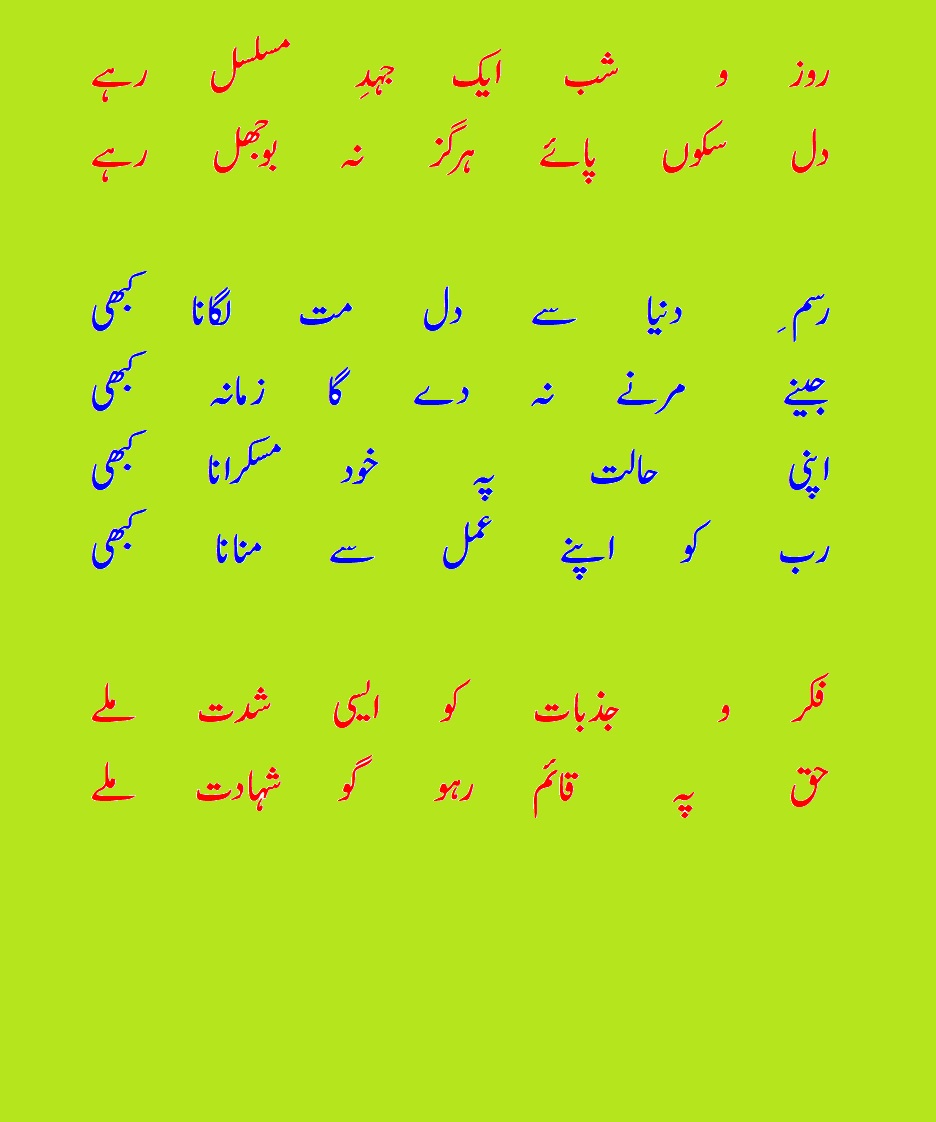 روز و شب ایک جہدِ مسلسل رہے
دل سکوں پائے ہرگز نہ بوجھل رہے
رسمِ دنیا سے دل مت لگانا کبھی
جینے مرنے نہ دے گا زمانہ کبھی
اپنی حالت پہ خود مسکرانا کبھی
رب کو اپنے عمل سے منانا کبھی
فکر و جذبات کو ایسی شدت ملے
حق پہ قائم رہو گو شہادت ملے